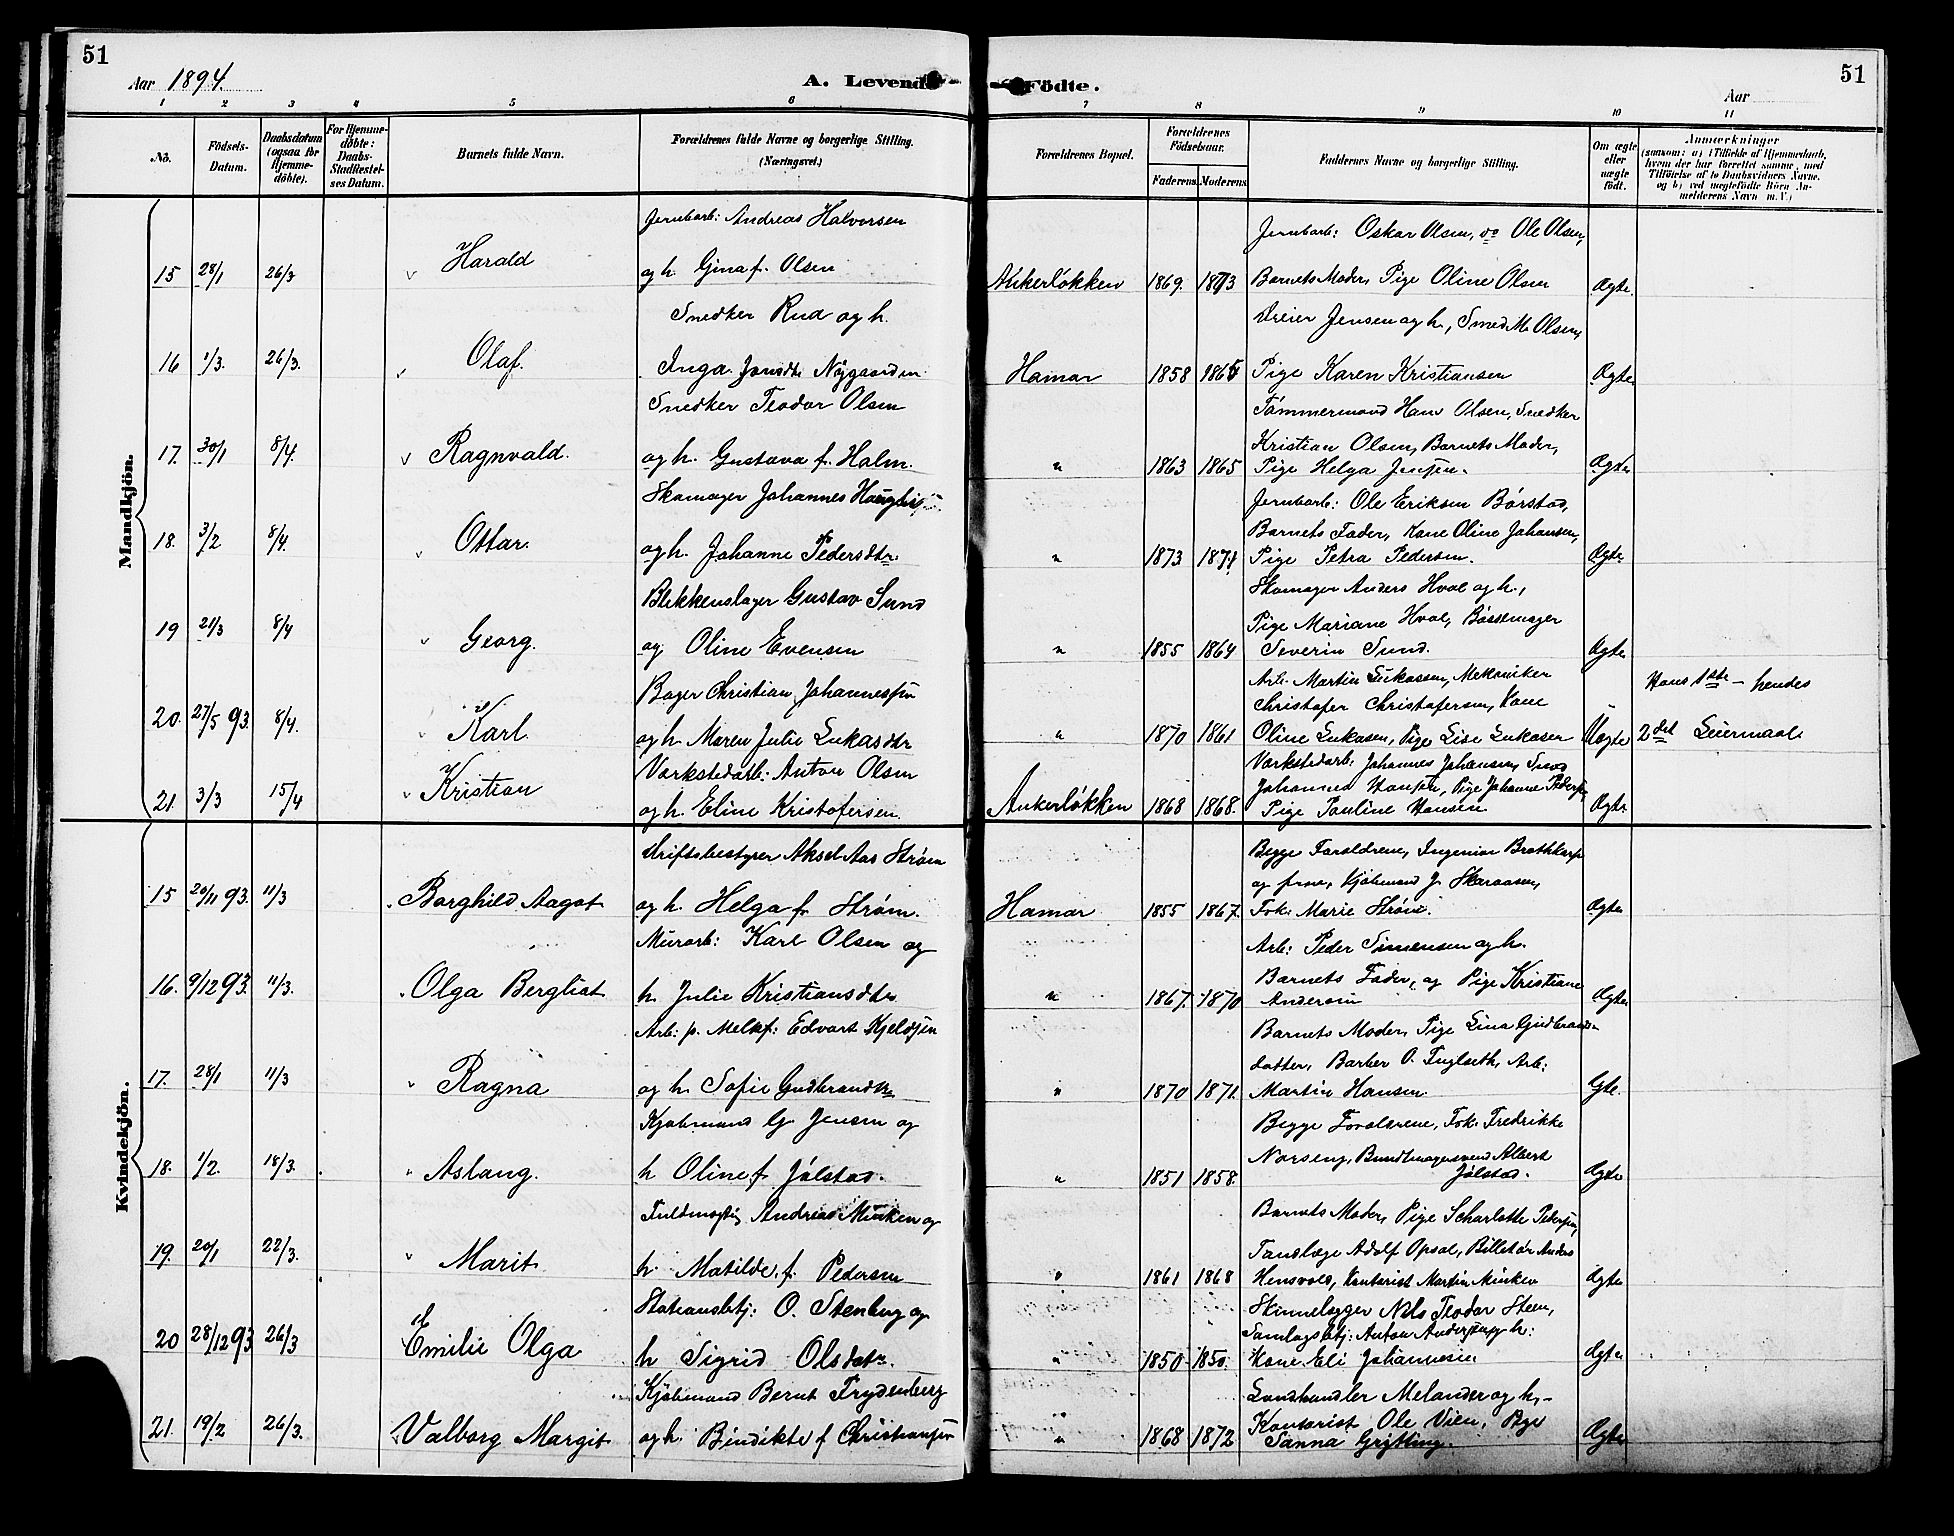 51
Aar 1894.
A. Levende
Födte.
51
Aar
1 2 3 4 5 6 7 8 9 10 11
No.
Födsels-Datum.
Daabsdatum (ogsaa for Hjemmedöbte).
For Hjemmedöbte: Daabs-Stadfestelses Datum.
Barnets fulde Navn.
Forældrenes fulde Navne og borgerlige Stilling. (Næringsvei.)
Forældrenes Bopæl.
Forældrenes Födselsaar.
Faderens
Moderens
Faddernes Navne og borgerlige Stilling.
Om ægte eller uægte födt.
Anmærkninger
(saasom: a) i Tilfælde af Hjemmedaab, hvem der har forrettet samme, med Tilföielse af to Daabsvidners Navne. og b) ved uægtefödte Börn Anmelderens Navn m.V.)
Mandkjön.
Jernbarb: Andreas Halvorsen
Jernbarb: Oskar Olsen, do Ole Olsen,
15 28/1 26/3 Harald
og h. Gina f. Olsen
Ankerløkken 1869. 1873 Barnets Moder, Pige Oline Olsen Ægte.
Snedker Rud og h.
Dreier Jensen og h, Smed M. Olsen,
16 1/3. 26/3. Olaf.
Inga Jonsdtr Nygaarden
Hamar 1858 1865 Pige Karen Kristiansen Ægte
Snedker Teodor Olsen
Tømmermand Hans Olsen, Snedker
Kristian Olsen, Barnets Moder,
17. 30/1 8/4. Ragnvald.
og h. Gustava f. Holm.
" 1863 1865 Pige Helga Jensen. Ægte
Skomager Johannes
Jernbarb: Ole Eriksen Børstad,
Barnets Fader, Kone Oline Johansen,
18. 3/2 8/4. Ottar.
og h. Johanne Pedersdtr
" 1873 1871 Pige Petra Pedersen. Ægte
Blikkenslager Gustav Sund
Skomager Anders Hval og h,
Pige Mariane Hval, Bøssemager
19 21/3 8/4 Georg.
og Oline Evensen
" 1855 1864 Severin Sund. Ægte
Bager Christian Johannessen
Arb. Martin Lukassen, Mekaniker
Christofer Christofersen, Kone
Hans 1ste – hendes
20. 27/5 93. 8/4. Karl
og h. Maren Julie Lukasdtr
" 1870 1861 Oline Lukasen, Pige Lise Lukasen Uægte 2det Leiermaal
Værkstedarb: Anton Olsen
Værkstedarb. Johannes Johansen, Smed
Johannes Hansen, Pige Johanne Peders.
21. 3/3 15/4 Kristian
og h. Eline Kristofersen.
Ankerløkken 1868 1868. Pige Pauline Hansen Ægte
Kvindekjön.
Driftsbestyrer Aksel Aas Strøm
Begge Forældrene, Ingeniør
og frue, Kjøbmand J. Skaraasen,
15 20/11 93. 11/3 Borghild Aagot
og h. Helga f. Strøm.
Hamar 1855 1867. Frk. Marie Strøm. Ægte
Murarb: Karl Olsen og
Arb: Peder Simensen og h.
Barnets Fader, og Pige Kristiane
16. 9/12 93. 11/3. Olga Bergliot
h. Julie Kristiansdtr
" 1867. 1870 Andersen Ægte
Arb: p. Melkf: Edvart Kjeldsen
Barnets Moder, Pige Lina Gudbrands-
datter, Barber O. Fuglseth, Arb:
17. 28/1 11/3 Ragna
og h. Sofie Gudbrandsdtr
" 1870 1871. Martin Hansen. Ægte.
Kjøbmand G. Jensen og
Begge Forældrene, Frk. Fredrikke
Norseng, Bundtmagersvend Albert
18. 1/2. 18/3. Aslaug.
h. Oline f. Jølstad.
" 1851 1858. Jølstad. Ægte
Fuldmægtig Andreas Minken og
Barnets Moder, Pige Scharlotte Pedersen,
Tandlæge Adolf Opsal, Billetør Anders
19. 20/1 22/3. Marit
h. Matilde f. Pedersen
" 1861 1868 Hensvold, Kontorist Martin Minken Ægte
Stationsbetj: O. Stenberg og
Skinnelægger Nils Teodor Steen,
Samlagsbetj: Anton Andersen og h:
20 28/12 93 26/3 Emilie Olga
h. Sigrid Olsdatr.
" 1850 1850. Kone Eli Johannesen Ægte
Kjøbmand Bernt Frydenberg
Landhandler Melander og h,
Kontorist Ole Vien, Pige
21. 19/2 26/3. Valborg Margit
og h. Bindikte f Christiansen
" 1868 1872 Sanna Grytting. Ægte